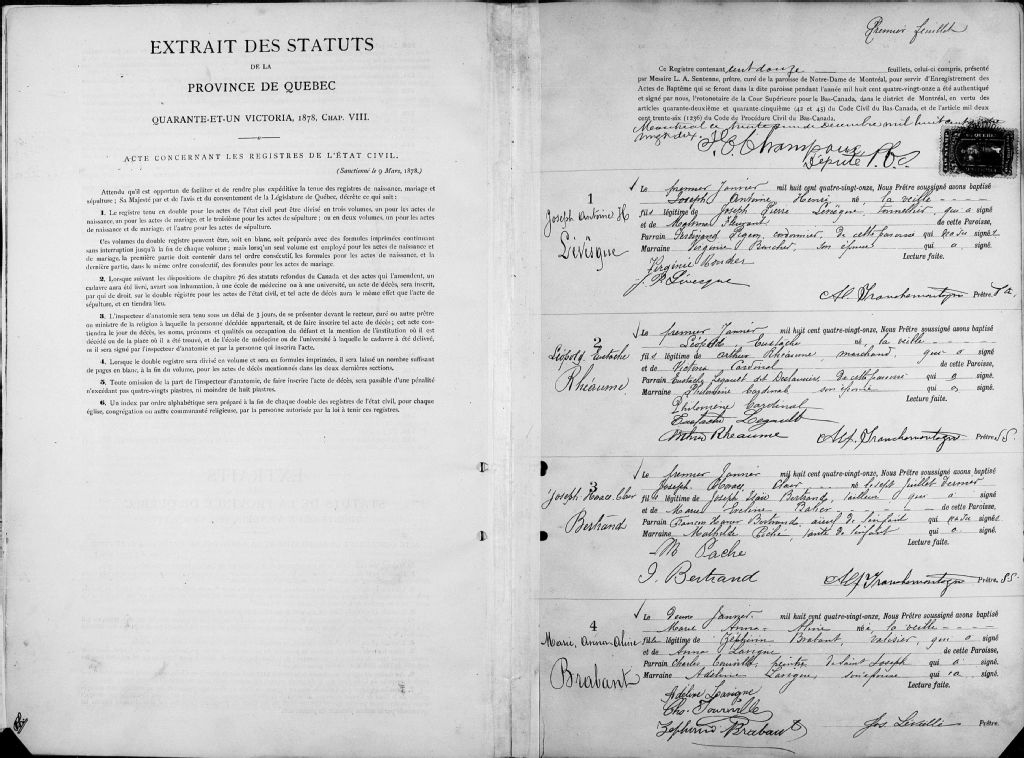 EXTRAIT DES STATUTS
DE LA
PROVINCE DE QUEBEC
QUARANTE-ET-UN VICTORIA, 1878, CHAP. VIII.
ACTE CONCERNANT LES REGISTRES DE L'ÉTAT CIVIL.
(Sanctionné le 9 Mars, 1878.)
Attendu qu'il est opportun de faciliter et de rendre plus expéditive la tenue des registres de naissance, mariage et
sépulture ; Sa Majesté par et de l'avis et du consentement de la Législature de Québec, décrète ce qui suit :
1. Le registre tenu en double pour les actes de l'état civil peut être divisé en trois volumes, un pour les actes de
naissance, un pour les actes de mariage, et le troisième pour les actes de sépulture ; ou en deux volumes, un pour les actes
de naissance et de mariage, et l'autre pour les actes de sépulture.
Ces volumes du double registre peuvent être, soit en blanc, soit préparés avec des formules imprimées continuant
sans interruption jusqu'à la fin de chaque volume ; mais lorsqu'un seul volume est employé pour les actes de naissance et
de mariage, la première partie doit contenir dans tel ordre consécutif, les formules pour les actes de naissance, et la
dernière partie, dans le même ordre consécutif, des formules pour les actes de mariage.
2. Lorsque suivant les dispositions de chapitre 76 des statuts refondus du Canada et des actes qui l'amendent, un
cadavre aura été livré, avant son inhumation, à une école de médecine ou à une université, un acte de décès, sera inscrit,
par qui de droit, sur le double registre pour les actes de l'état civil, et tel acte de décès aura le même effet que l'acte de
sépulture, et en tiendra lieu.
3. L'inspecteur d'anatomie sera tenu sous un délai de 3 jours, de se présenter devant le recteur, curé ou autre prêtre
ou ministre de la religion à laquelle la personne décédée appartenait, et de faire inscrire tel acte de décès; cet acte con-
tiendra le jour du décès, les noms, prénoms et qualités ou occupation du défunt et la mention de l'institution où il est
décédé ou de la place où il a été trouvé, et de l'école de médecine ou de l'université à laquelle le cadavre a été délivré,
et il sera signé par l'inspecteur d'anatomie et par la personne qui inscrira l'acte.
4. Lorsque le double registre sera divisé en volume et sera en formules imprimées, il sera laissé un nombre suffisant
de pages en blanc, à la fin du volume, pour les actes de décès mentionnés dans les deux dernières sections.
5. Toute omission de la part de l'inspecteur d'anatomie, de faire inscrire l'acte de décès, sera passible d'une pénalité
n'excédant pas quatre-vingts piastres, ni moindre de huit piastres.
6. Un index par ordre alphabétique sera préparé à la fin de chaque double des registres de l'état civil, pour chaque
église, congrégation ou autre communauté religieuse, par la personne autorisée par la loi à tenir ces registres.
Premier feuillet
Ce Registre contenant cent douze feuillets, celui-ci compris, présenté
par Messire L. A. Sentenne, prêtre, curé de la paroisse de Notre-Dame de Montréal, pour servir d'Enregistrement des
Actes de Baptême qui se feront dans la dite paroisse pendant l'année mil huit cent quatre-vingt-onze a été authentiqué
et signé par nous, Protonotaire de la Cour Supérieure pour le Bas-Canada, dans le district de Montréal, en vertu des
articles quarante-deuxième et quarante-cinquième (42 et 45) du Code Civil du Bas-Canada, et de l'article mil deux
cent trente-six (1236) du Code de Procédure Civil du Bas-Canada.
Montréal ce trente décembre mil huit cent
Député P.C.S
1
Joseph Antoine H
Lévêque
Le premier Janvier mil huit cent quatre-vingt-onze, Nous Prêtre soussigné avons baptisé
Joseph Antoine Henri né, la veille
fils légitime de Joseph Pierre Lévêque, tonnelier, qui a signé
et de de cette Paroisse,
Parrain Ferdinand cordonnier, de cette paroisse qui signé
Marraine Virginie Boucher, son épouse qui a signé.
Lecture faite.
Virginie Boucher
J. P. Lévesque
Al. Franchemontagne Prêtre.
2
Léopold, Eustache
Rhéaume
Le premier Janvier mil huit cent quatre-vingt-onze, Nous Prêtre soussigné avons baptisé
Léopold Eustache né, la veille
fils légitime de Arthur Rhéaume, marchand, qui a signé
et de Victoria Cardinal de cette Paroisse,
Parrain Eustache Legault dit Deslauriers, de cette paroisse qui a signé
Marraine Philomène Cardinal son épouse qui a signé.
Lecture faite.
Philomène Cardinal
Eustache Legault
Arthur Rhéaume
Alf. Franchemontagne Prêtre. SS.
3
Joseph Horace Clair
Bertrand
Le premier Janvier mil huit cent quatre-vingt-onze, Nous Prêtre soussigné avons baptisé
Joseph Horace Clair né le sept Juillet dernier
fils légitime de Joseph Bertrand, tailleur qui a signé
et de Marie de cette Paroisse,
Parrain Bertrand, de l'enfant qui signé
Marraine Mathilde tante de l'enfant qui a signé.
Lecture faite.
M Paché
J. Bertrand
Alf Franchemontagne Prêtre. SS.
4
Marie, Anna Aline
Brabant
Le Deux Janvier mil huit cent quatre-vingt-onze, Nous Prêtre soussigné avons baptisé
Marie Anna Aline née, la veille
fille légitime de Zéphirin Brabant, valisier, qui a signé
et de Anna Lavigne de cette Paroisse,
Parrain Charles Tourville, peintre de Saint Joseph qui a signé
Marraine Adeline Lavigne, son épouse qui a signé.
Lecture faite.
Adéline Lavigne
Chs. Tourville
Zéphirin Brabant
Prêtre.